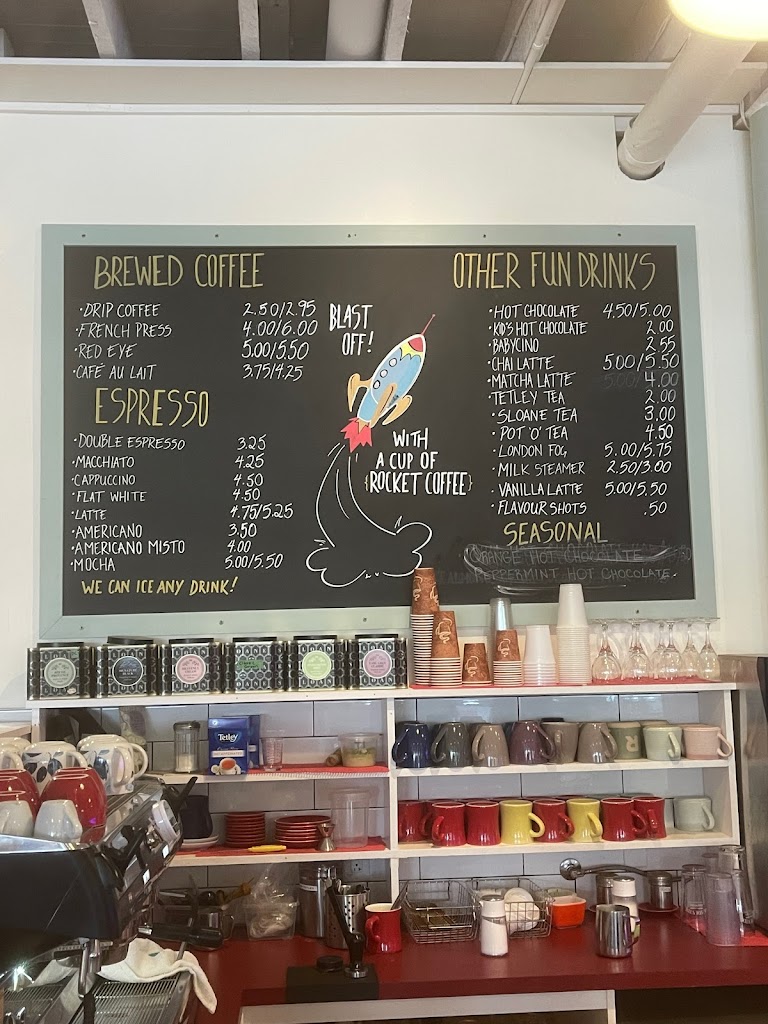 BREWED COFFEE
· DRIP COFFEE 2.50/2.95
· FRENCH PRESS 4.00/6.00
· RED EYE 5.00/5.50
· CAFÉ AU LAIT 3.75/4.25
ESPRESSO
· DOUBLE ESPRESSO 3.25
· MACCHIATO 4.25
· CAPPUCCINO 4.50
· FLAT WHITE 4.50
· LATTE 4.75/5.25
· AMERICANO 3.50
· AMERICANO MISTO 4.00
· MOCHA 5.00/5.50
WE CAN ICE ANY DRINK!
BLAST
OFF!
WITH
A CUP OF
{ROCKET COFFEE}
OTHER FUN DRINKS
· HOT CHOCOLATE 4.50/5.00
· KID'S HOT CHOCOLATE 2.00
· BABYCINO 2.55
· CHAI LATTE 5.00/5.50
· MATCHA LATTE 5.00/4.00
· TETLEY TEA 2.00
· SLOANE TEA 3.00
· POT 'O' TEA 4.50
· LONDON FOG 5.00/5.75
· MILK STEAMER 2.50/3.00
· VANILLA LATTE 5.00/5.50
· FLAVOUR SHOTS .50
SEASONAL
ORANGE HOT CHOCOLATE
PEPPERMINT HOT CHOCOLATE
Tetley